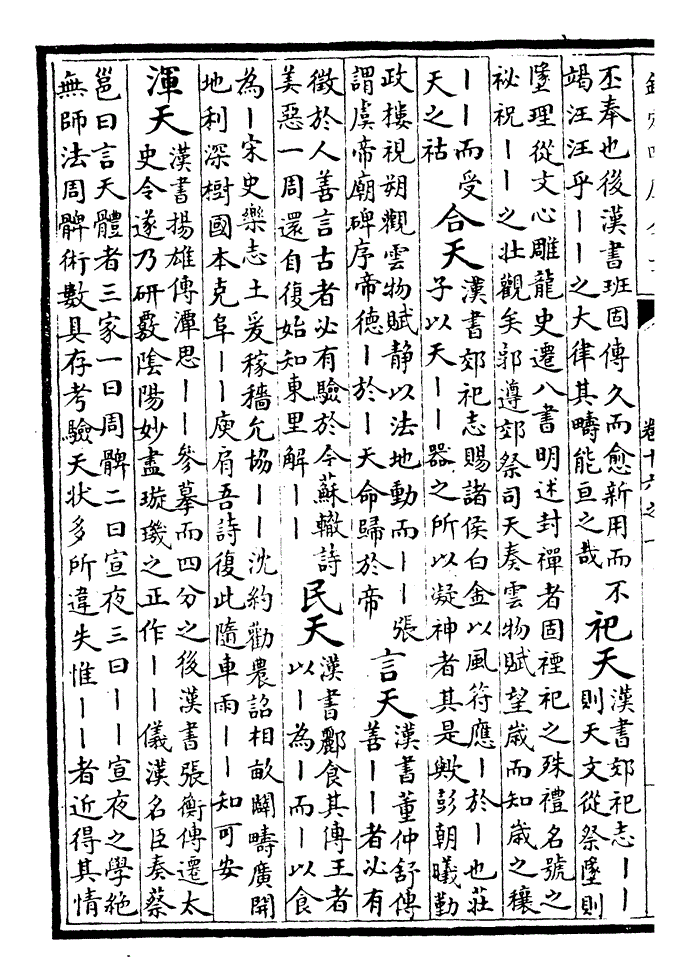 丕奉也後漢書班固傳久而愈新用而不
竭汪汪乎丨丨之大律其疇能亘之哉
祀天
漢書郊祀志丨丨
則天文從祭墜則
墜理從文心雕龍史遷八書明述封禪者固禋祀之殊禮名號之
祕祝丨丨之壯觀矣郭遵郊祭司天奏雲物賦望歲而知歲之穰
丨丨而受
天之祜
合天
漢書郊祀志賜諸侯白金以風符應丨於丨也莊
子以天丨丨器之所以凝神者其是歟彭朝曦勤
政樓視朔觀雲物賦静以法地動而丨丨張
謂虞帝廟碑序帝德丨於丨天命歸於帝
言天
漢書董仲舒傳
善丨丨者必有
徵於人善言古者必有驗於今蘇轍詩
美惡一周還自復始知東里解丨丨
民天
漢書酈食其傳王者
以丨為丨而丨以食
為丨宋史樂志土爰稼穡允協丨丨沈約勸農詔相畝闢疇廣開
地利深樹國本克阜丨丨庾肩吾詩復此隨車雨丨丨知可安
渾天
漢書揚雄傳潭思丨丨參摹而四分之後漢書張衡傳遷太
史令遂乃研覈陰陽妙盡璇璣之正作丨丨儀漢名臣奏蔡
邕曰言天體者三家一曰周髀二曰宣夜三曰丨丨宣夜之學絶
無師法周髀術數具存考驗天状多所違失惟丨丨者近得其情